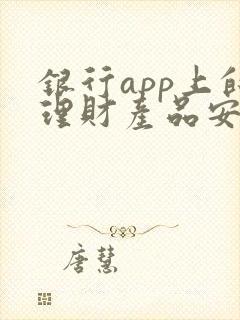 銀行app上的
理財產品安
唐慧